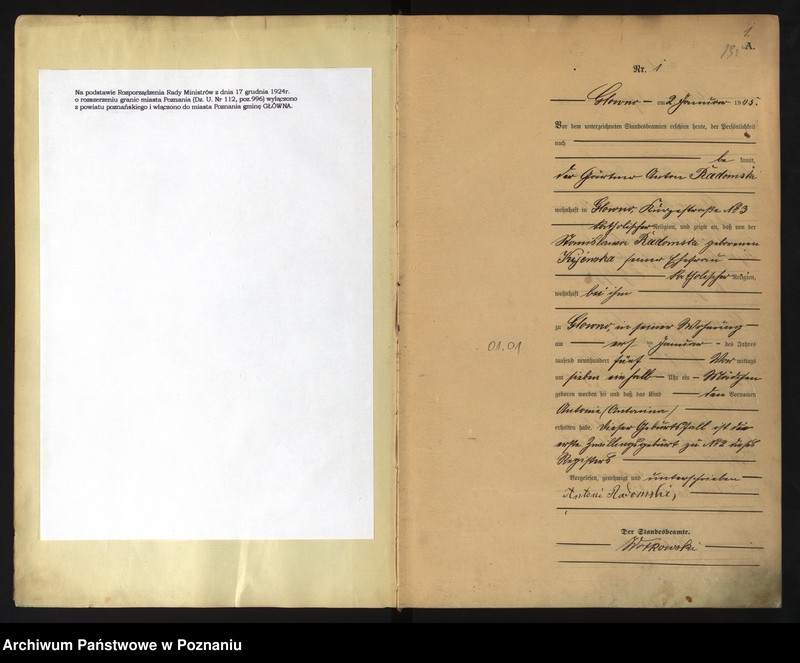 Na podstawie Rozporządzenia Rady Ministrów z dnia 17 grudnia 1924r.
o rozszerzeniu granic miasta Poznania (Dz. U. Nr 112, poz.996) wyłączono
z powiatu poznańskiego i włączono do miasta Poznania gminę GŁÓWNA.
1.
A.
Nr. 1
Glowno am 2 Januar 1905.
Vor dem unterzeichneten Standesbeamten erschien heute, der Persönlichkeit
nach
be kannt,
der Gärtner Anton Radomski
wohnhaft in Glowno, No 3
katholischer Religion, und zeigte an, daß von der
Stanislawa Radomska geborenen
seiner Ehefrau
katholischer Religion,
wohnhaft bei ihm
zu Glowno, in seiner Wohnung
am ersten Januar des Jahres
tausend neunhundert fünf Vor mittags
um sieben einhalb Uhr ein Mädchen
geboren worden sei und daß das Kind den Vornamen
Antonie (Antonina)
erhalten habe. Dieser Geburtsfall ist die
erste Zwillingsgeburt zu No 2 dieses
Registers
Vorgelesen, genehmigt und unterschrieben
Antoni Radomski,
Der Standesbeamte.
Witkowski
01.01
Archiwum Państwowe w Poznaniu